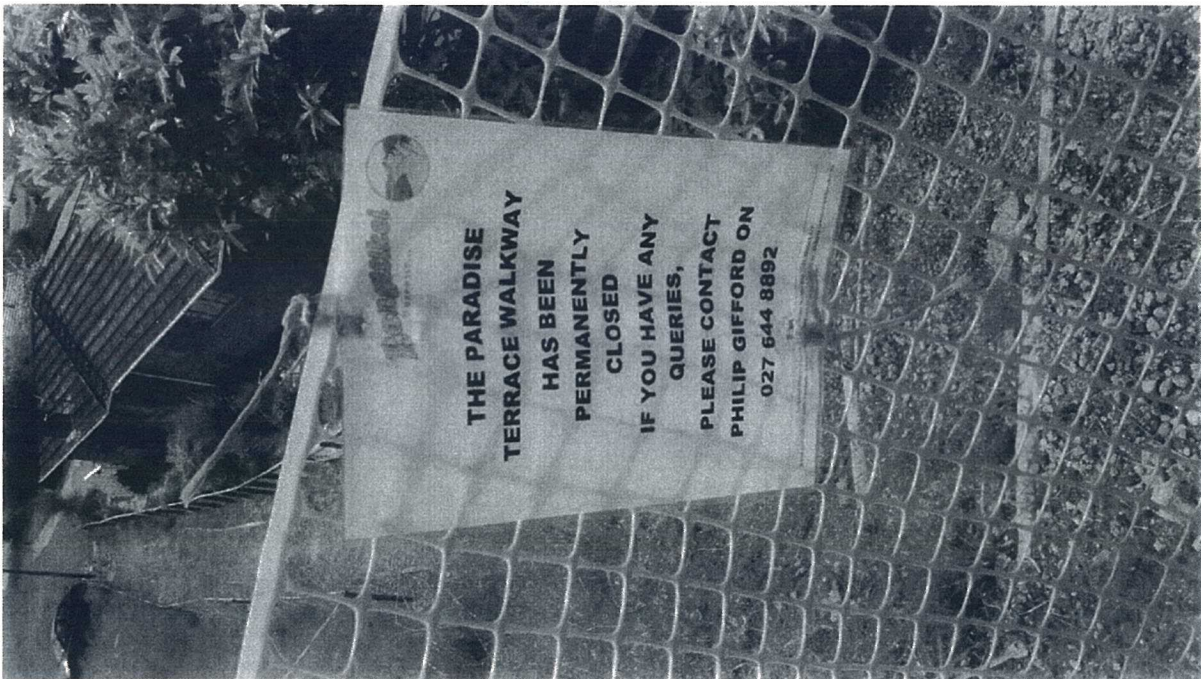 THE PARADISE
TERRACE WALKWAY
HAS BEEN
PERMANENTLY
CLOSED
IF YOU HAVE ANY
QUERIES,
PLEASE CONTACT
PHILIP GIFFORD ON
027 644 8892